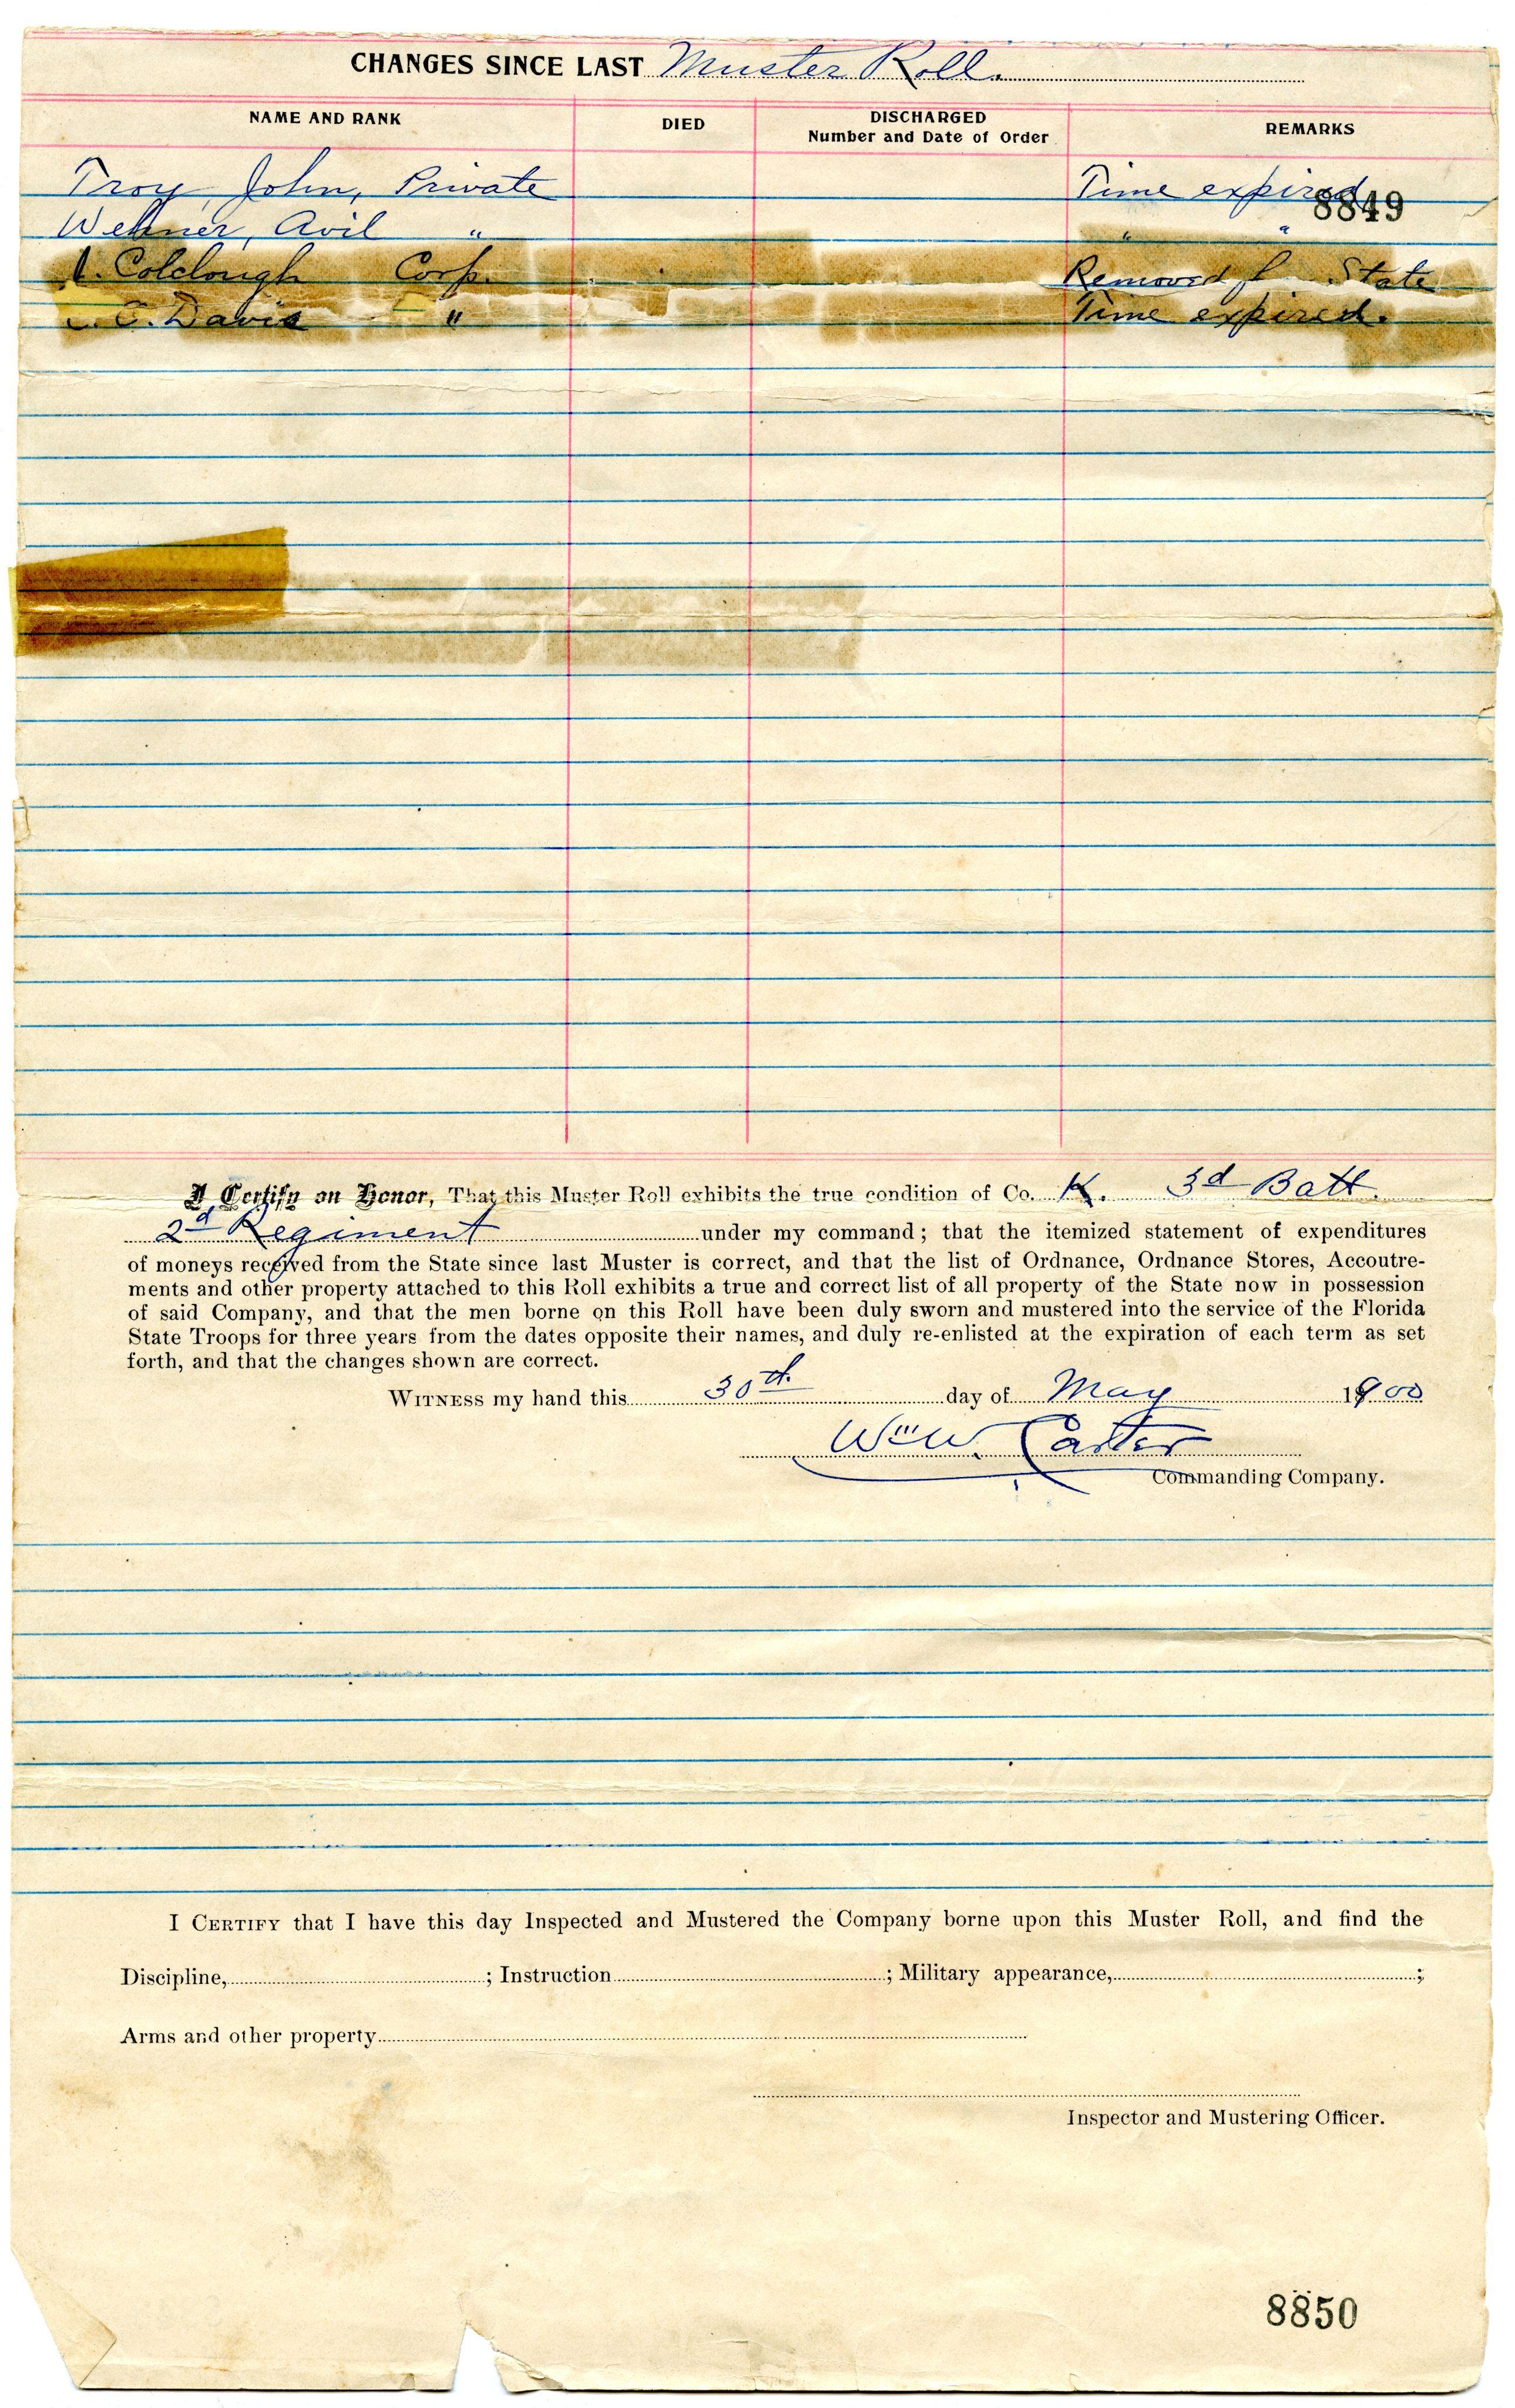 CHANGES SINCE LAST Muster Roll.
NAME AND RANK DIED DISCHARGED Number and Date of Order REMARKS
Troy, John, Private Time expired
8849
Wehner, Avil " " "
Colclough Corp. Removed f State
C. Davis " Time expired.
I Certify on Honor, That this Muster Roll exhibits the true condition of Co. K. 3d Batt.
2d Regiment under my command; that the itemized statement of expenditures
of moneys received from the State since last Muster is correct, and that the list of Ordnance, Ordnance Stores, Accoutre-
ments and other property attached to this Roll exhibits a true and correct list of all property of the State now in possession
of said Company, and that the men borne on this Roll have been duly sworn and mustered into the service of the Florida
State Troops for three years from the dates opposite their names, and duly re-enlisted at the expiration of each term as set
forth, and that the changes shown are correct.
WITNESS my hand this 30th day of May 1900
Wm W. Carter
Commanding Company.
I CERTIFY that I have this day Inspected and Mustered the Company borne upon this Muster Roll, and find the
Discipline, ; Instruction ; Military appearance, ;
Arms and other property
Inspector and Mustering Officer.
8850